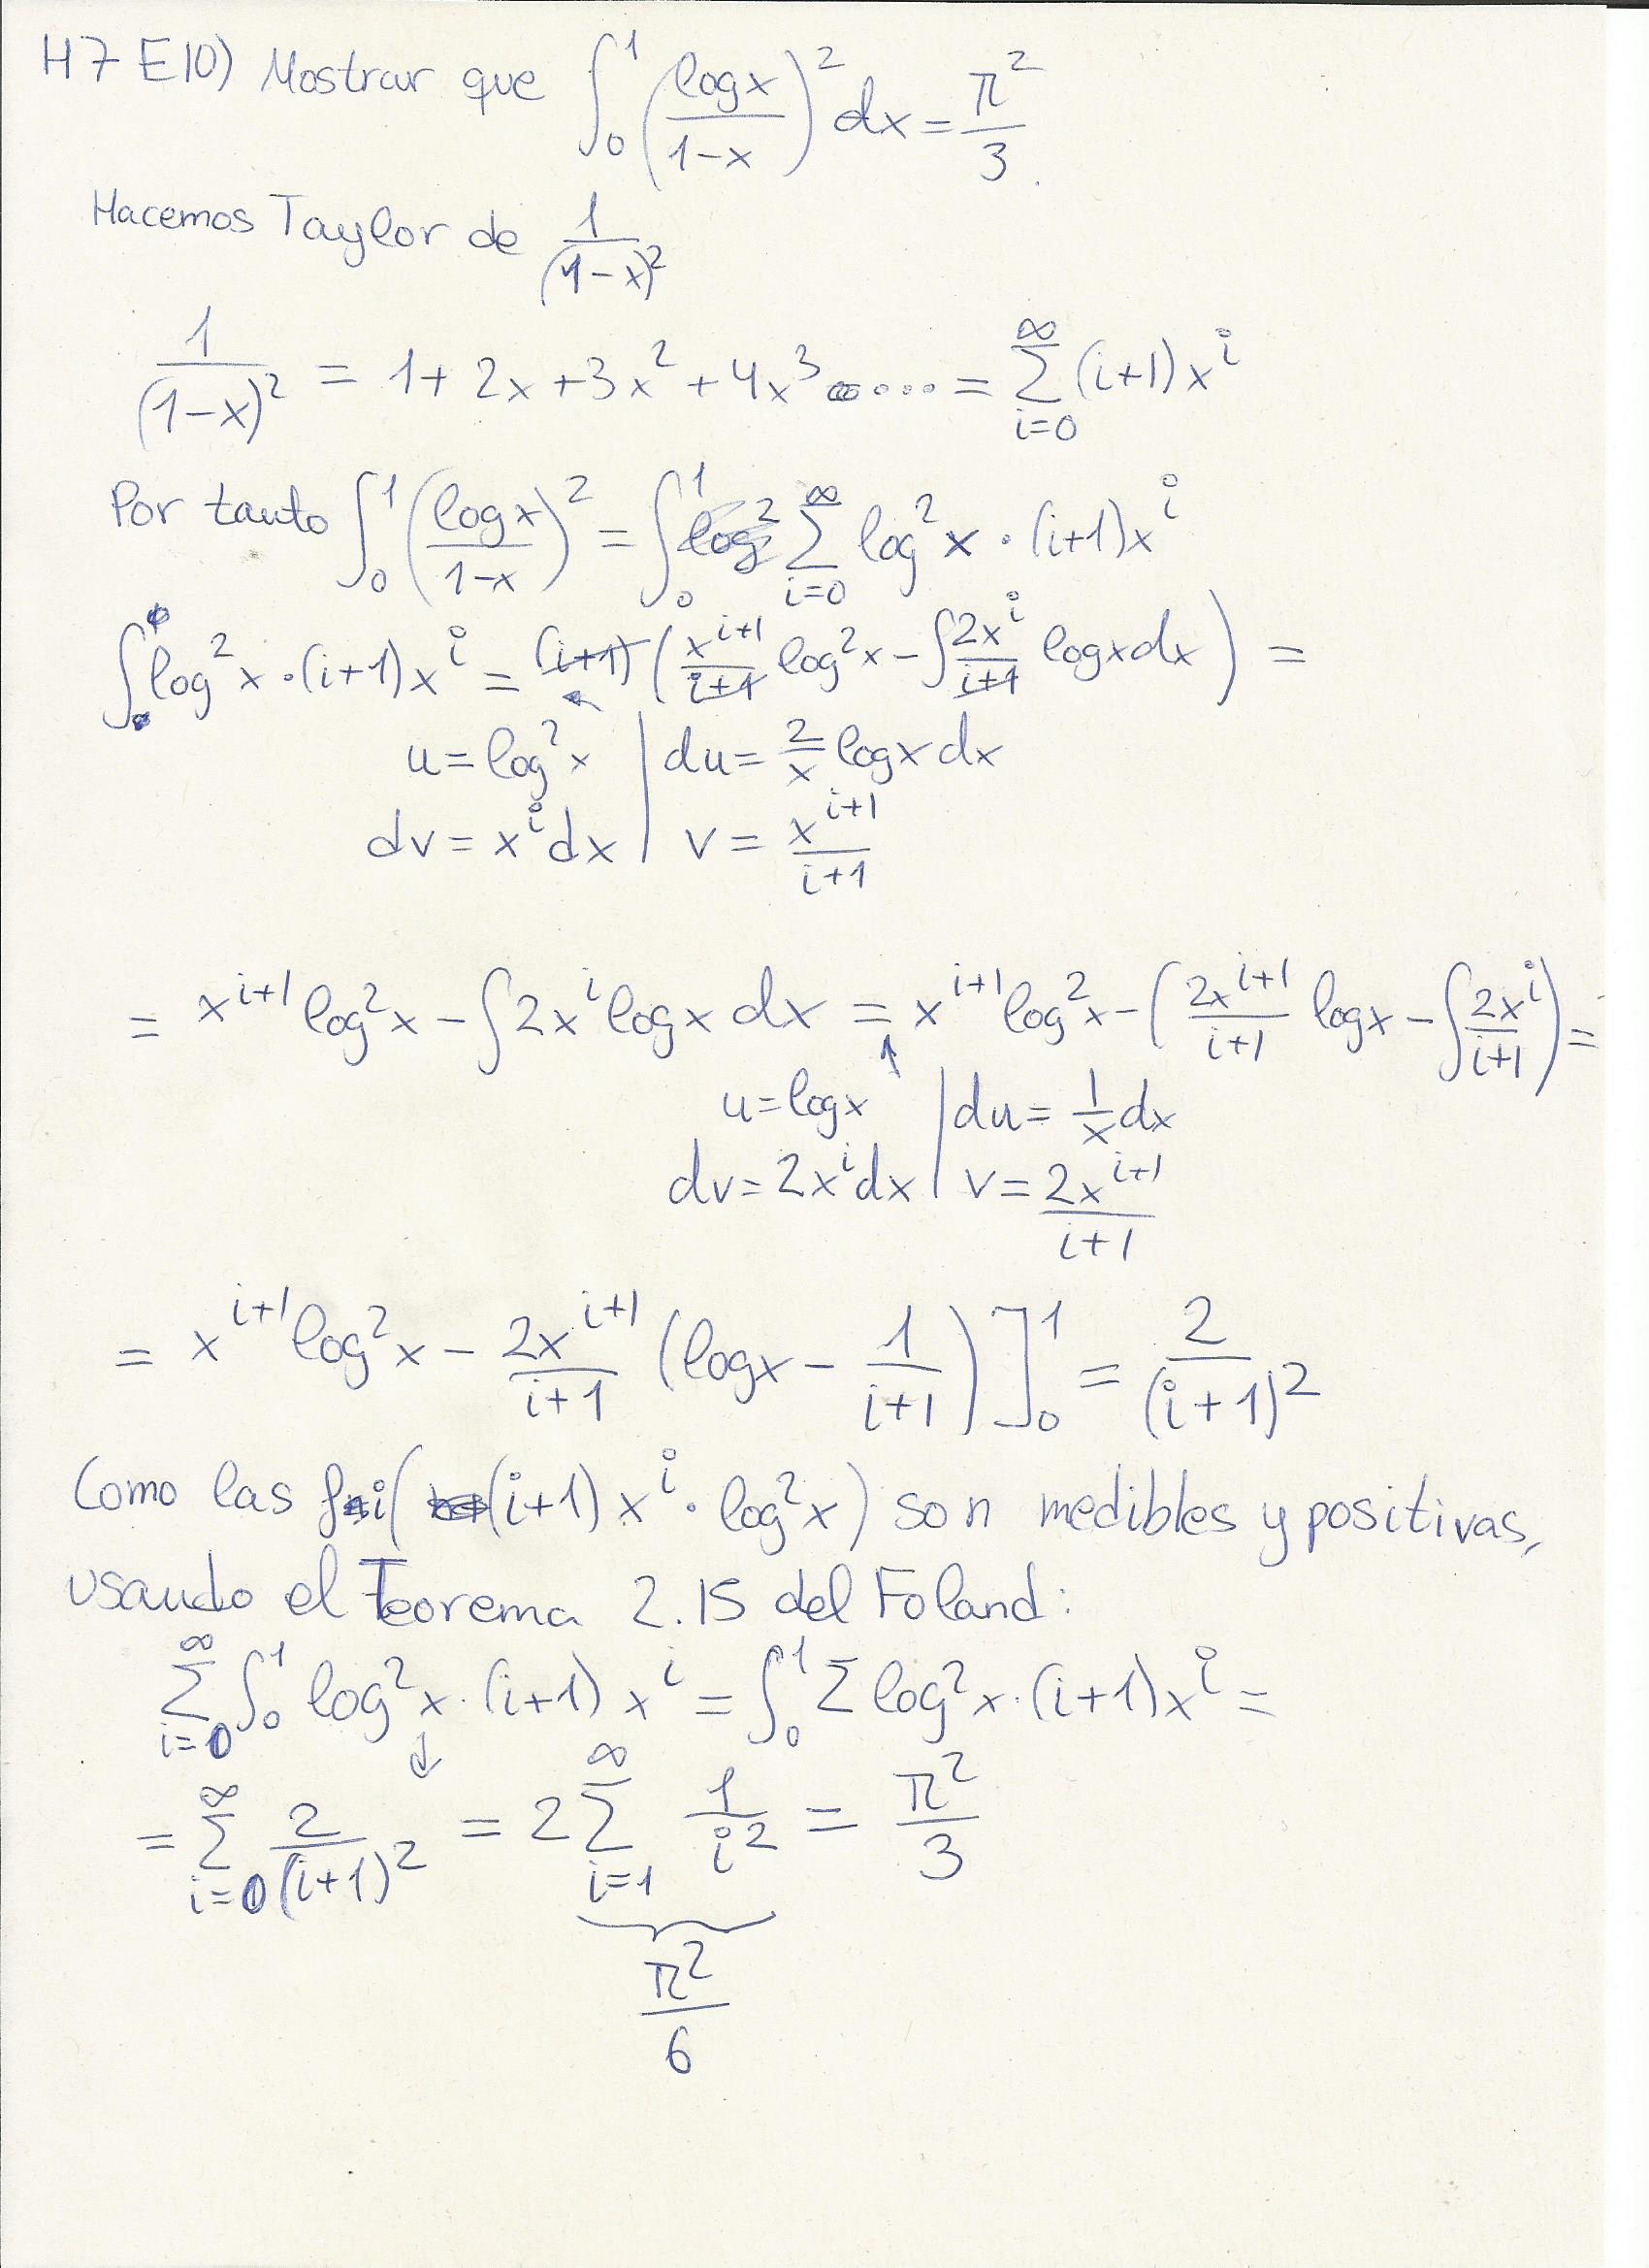 H7 E10) Mostrar que ∫_0^1 (log x / (1-x))^2 dx = π^2/3.
Hacemos Taylor de 1/(1-x)^2
1/(1-x)^2 = 1 + 2x + 3x^2 + 4x^3 ..... = ∑_{i=0}^∞ (i+1) x^i
Por tanto ∫_0^1 (log x / (1-x))^2 = ∫_0^1 ∑_{i=0}^∞ log^2 x · (i+1) x^i
∫ log^2 x · (i+1) x^i = (i+1) ( x^{i+1}/(i+1) log^2 x - ∫ 2x^i/(i+1) log x dx ) =
u = log^2 x | du = 2/x log x dx
dv = x^i dx | v = x^{i+1}/(i+1)
= x^{i+1} log^2 x - ∫ 2x^i log x dx = x^{i+1} log^2 x - ( 2x^{i+1}/(i+1) log x - ∫ 2x^i/(i+1) ) =
u = log x | du = 1/x dx
dv = 2x^i dx | v = 2x^{i+1}/(i+1)
= x^{i+1} log^2 x - 2x^{i+1}/(i+1) (log x - 1/(i+1)) ]_0^1 = 2/(i+1)^2
Como las ((i+1) x^i · log^2 x) son medibles y positivas,
usando el Teorema 2.15 del Foland:
∑_{i=0}^∞ ∫_0^1 log^2 x · (i+1) x^i = ∫_0^1 ∑ log^2 x · (i+1) x^i =
↓
= ∑_{i=0}^∞ 2/(i+1)^2 = 2 ∑_{i=1}^∞ 1/i^2 = π^2/3
π^2/6